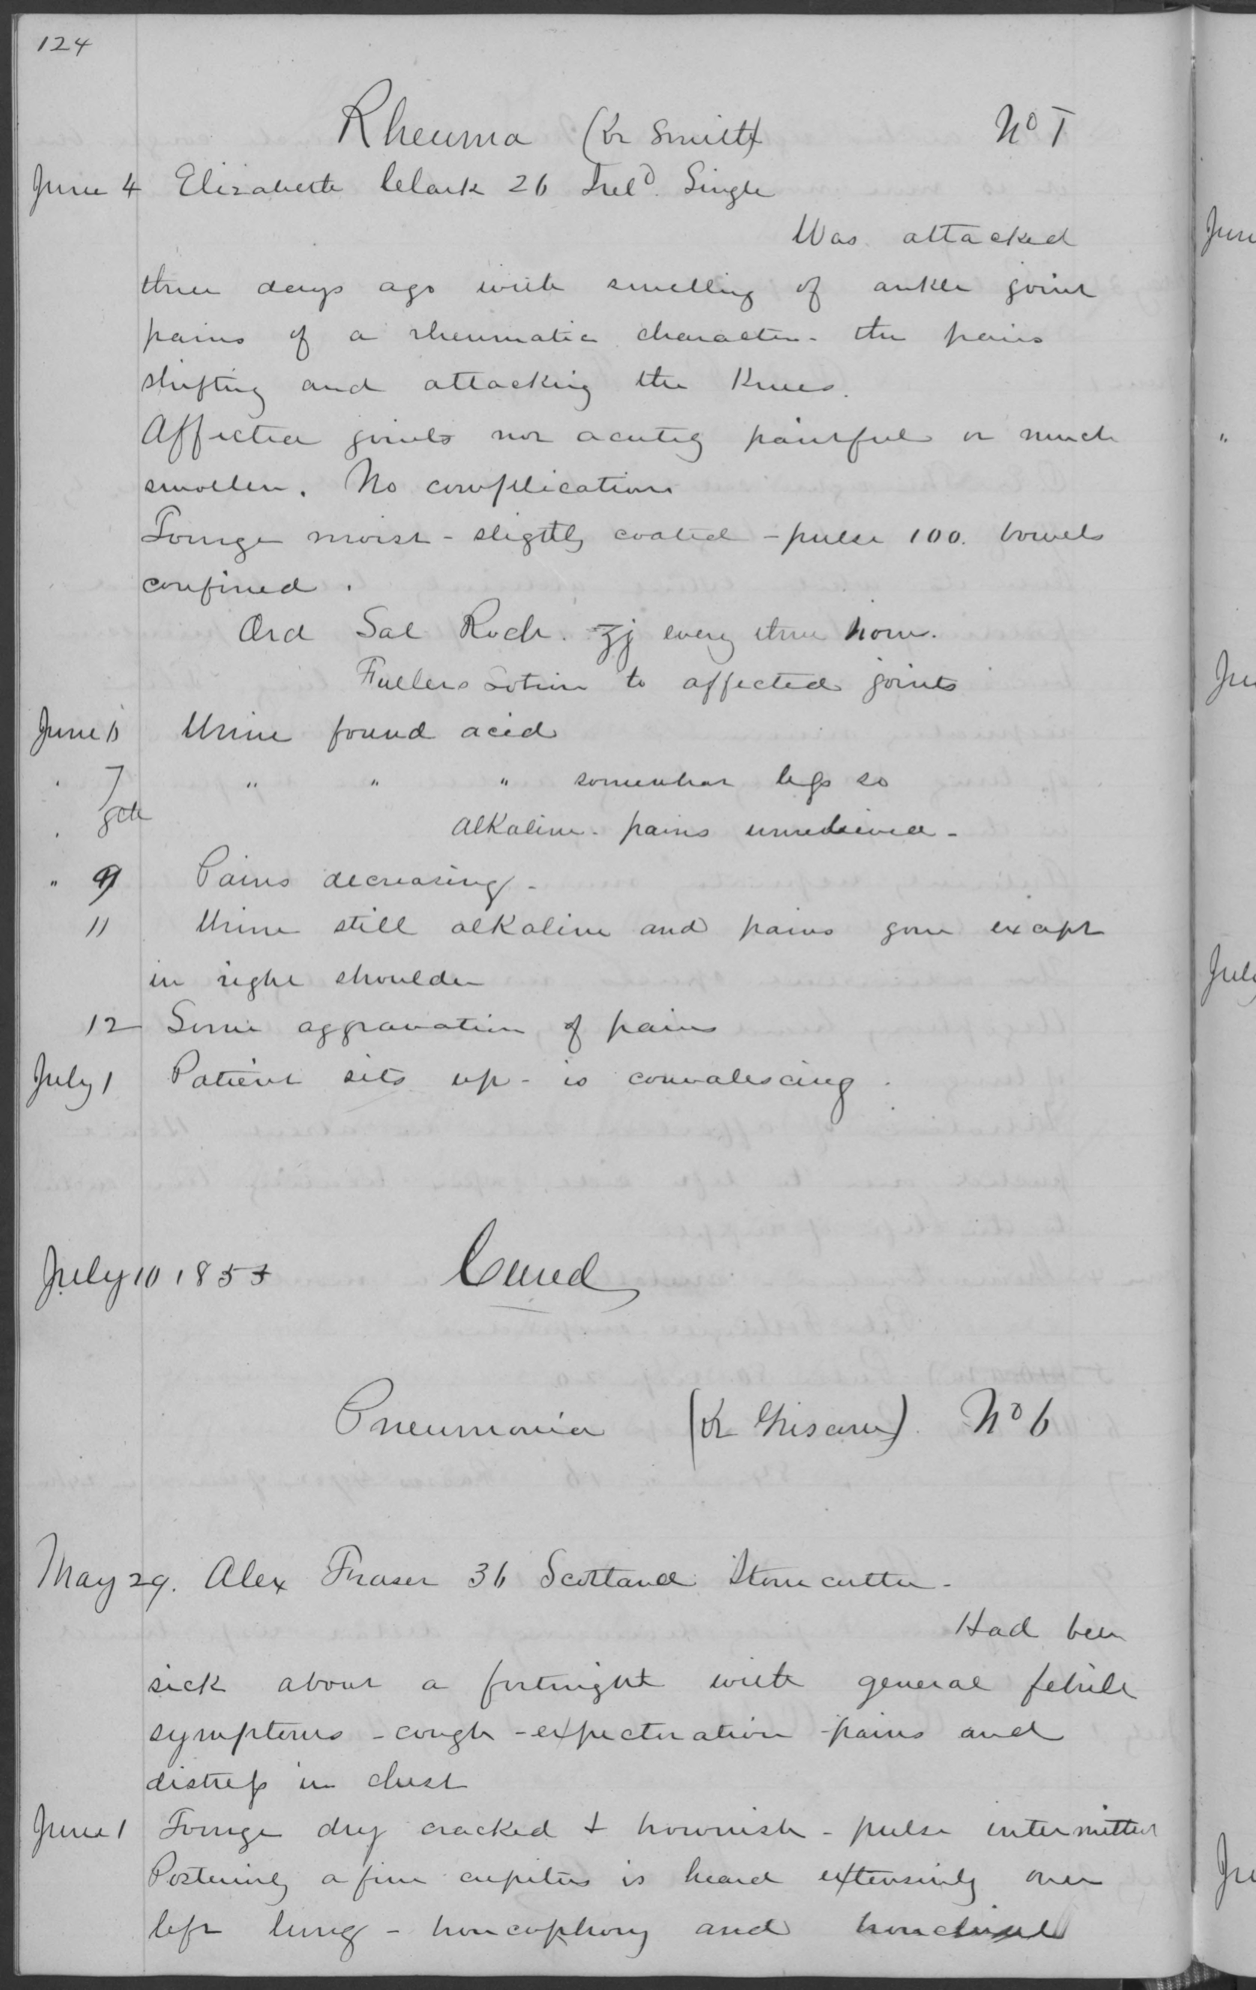 124
Rheuma (Dr Smith) No I
June 4 Elizabeth Clark 26 Irel^d. Single
Was attacked
three days ago with swelling of ankle joint
pains of a rheumatic character - the pains
shifting and attacking the knees.
Affected joints not acutely painful or much
swollen. No complications
Tongue moist - slightly coated - pulse 100. bowels
confined.
Ord Sal Roch. ʒj every three hours.
Fullers Lotion to affected joints
June 6 Urine found acid
" 7 " " " somewhat less so
" 8th alkaline - pains unrelieved -
" 9 Pains decreasing -
11 Urine still alkaline and pains gone except
in right shoulder
12 Some aggravation of pains
July 1 Patient sits up - is convalescing.
July 10 1853 Cured
Pneumonia (Dr Griscom) No 6
May 29. Alex Fraser 36 Scotland Stone cutter -
Had been
sick about a fortnight with general febrile
symptoms - cough - expectoration - pains and
distress in chest
June 1 Tongue dry cracked & brownish - pulse intermittent
Posteriorly a fine crepitus is heard extensively over
left lung - broncophony and bronchial
June
"
July